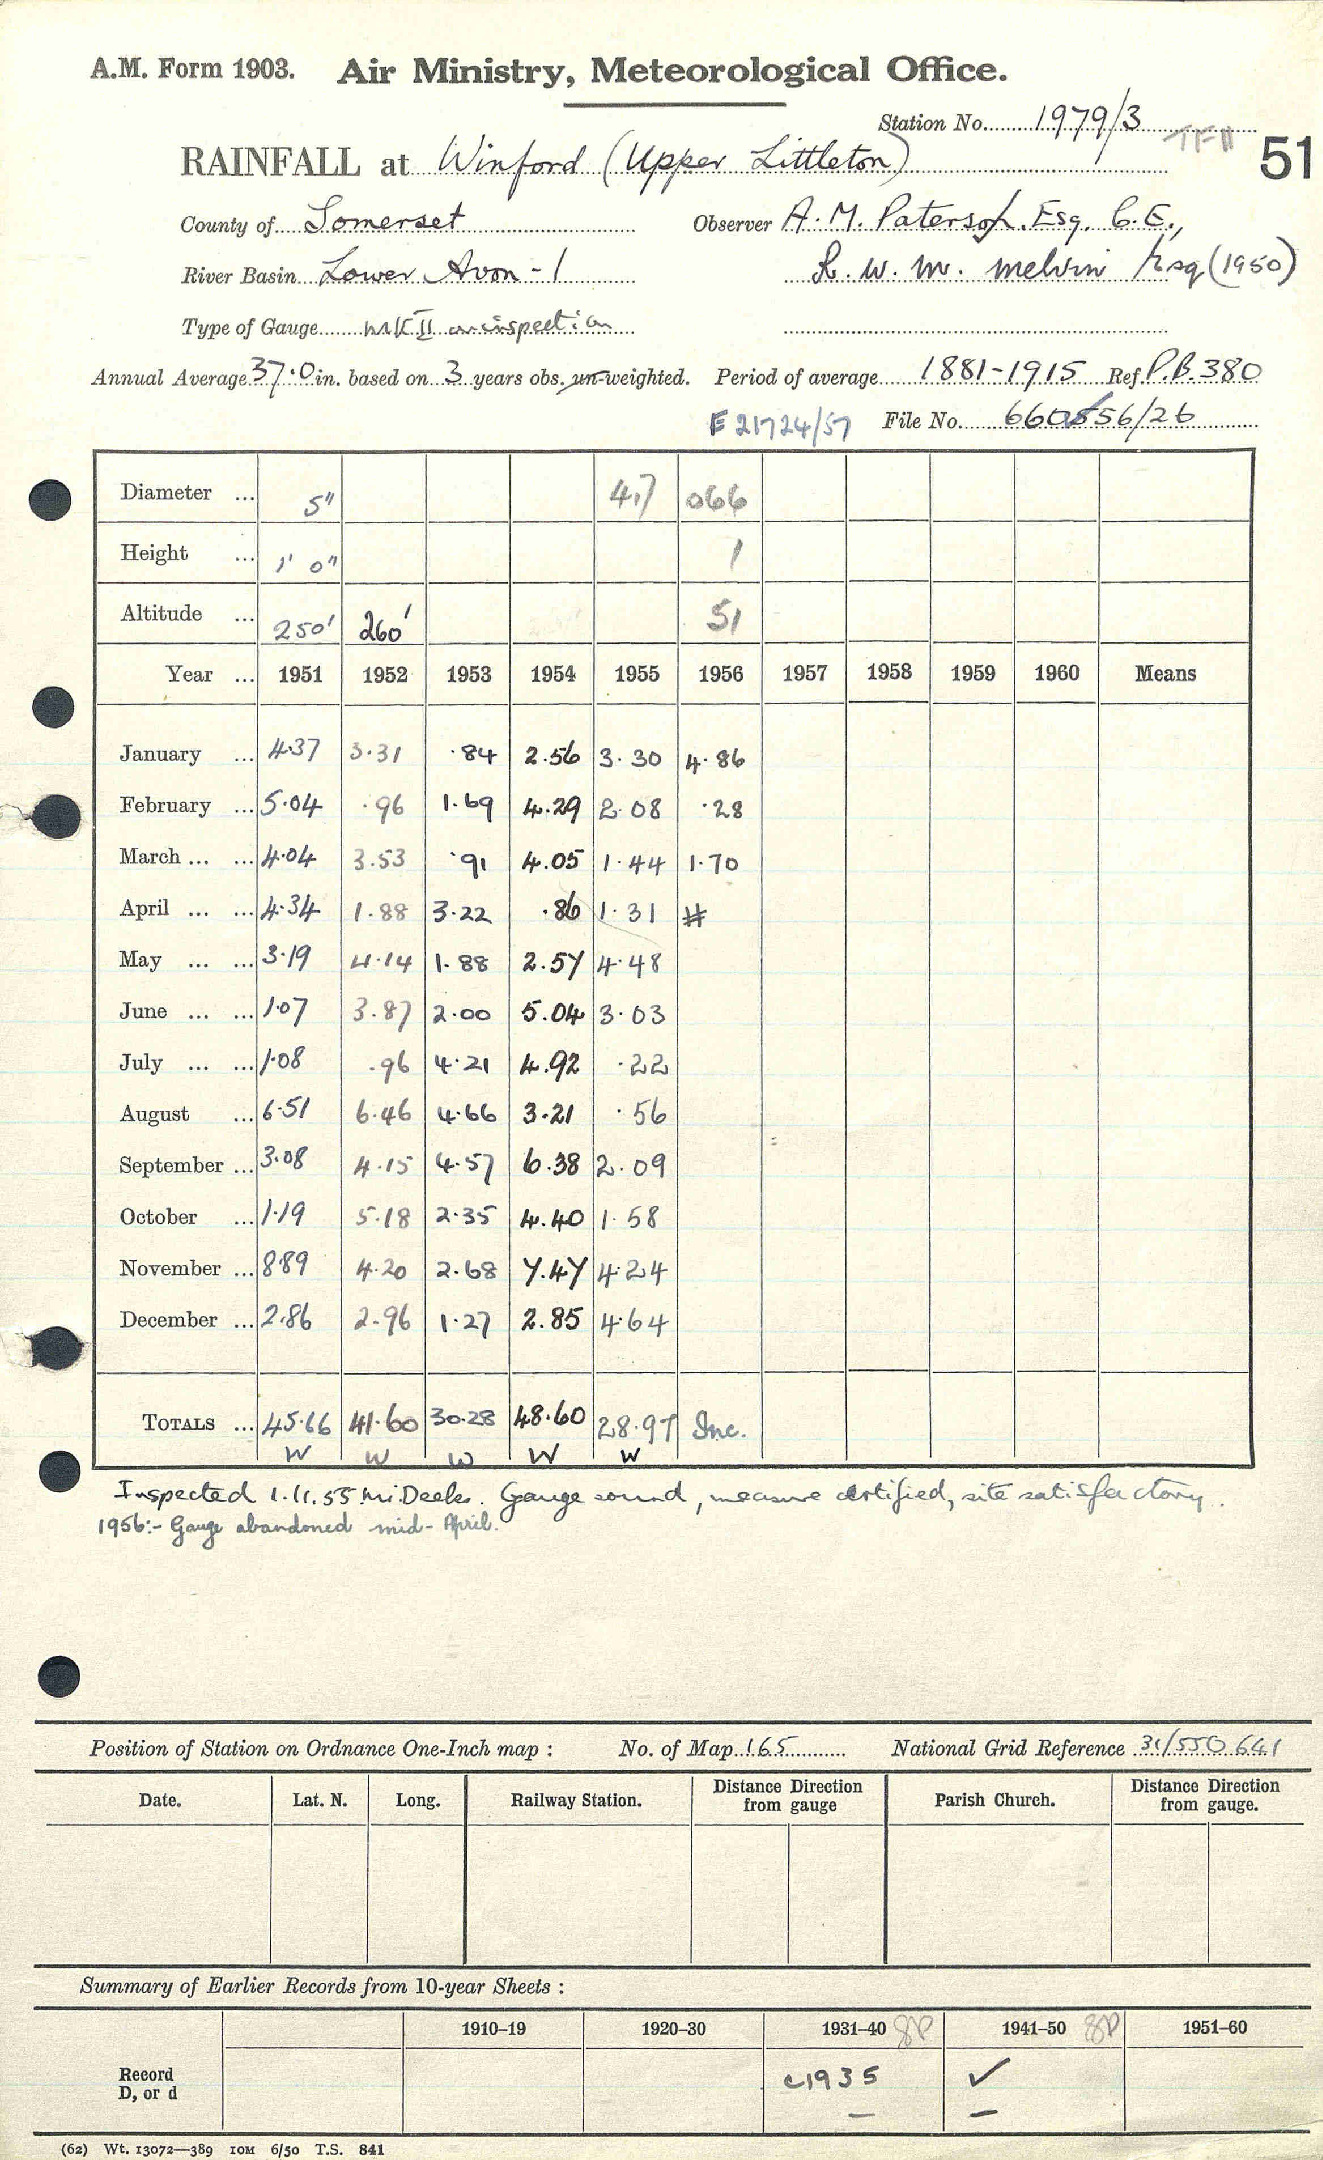 A.M. Form 1903. Air Ministry, Meteorological Office.
Station No. 1979/3
TF11 51
RAINFALL at Winford (Upper Littleton)
County of Somerset Observer A. M. Paterson. Esq. C.E.,
River Basin Lower Avon - 1 R. W. M. Melvin Esq (1950)
Type of Gauge MK II on inspection
Annual Average 37.0 in. based on 3 years obs. un-weighted. Period of average 1881-1915 Ref. P.B. 380
E 21724/57 File No. 660556/26
Diameter ... 5" 4.7 066
Height ... 1' 0" 1
Altitude ... 250' 260' 51
Year ... 1951 1952 1953 1954 1955 1956 1957 1958 1959 1960 Means
January ... 4.37 3.31 .84 2.56 3.30 4.86
February ... 5.04 .96 1.69 4.29 2.08 .28
March ... ... 4.04 3.53 .91 4.05 1.44 1.70
April ... ... 4.34 1.88 3.22 .86 1.31 #
May ... ... 3.19 4.14 1.88 2.57 4.48
June ... ... 1.07 3.87 2.00 5.04 3.03
July ... ... 1.08 .96 4.21 4.92 .22
August ... 6.51 6.46 4.66 3.21 .56
September ... 3.08 4.15 4.57 6.38 2.09
October ... 1.19 5.18 2.35 4.40 1.58
November ... 8.89 4.20 2.68 7.47 4.24
December ... 2.86 2.96 1.27 2.85 4.64
TOTALS ... 45.66 41.60 30.28 48.60 28.97 Inc.
W W W W W
Inspected 1.11.55 Mr. Deeks. Gauge sound, measure certified, site satisfactory.
1956:- Gauge abandoned mid-April.
Position of Station on Ordnance One-Inch map : No. of Map 165 National Grid Reference 31/550 641
Date. Lat. N. Long. Railway Station. Distance Direction from gauge Parish Church. Distance Direction from gauge.
Summary of Earlier Records from 10-year Sheets :
1910–19 1920–30 1931–40 1941–50 1951–60
Record c1935 ✓
D, or d – –
(62) Wt. 13072—389 10M 6/50 T.S. 841